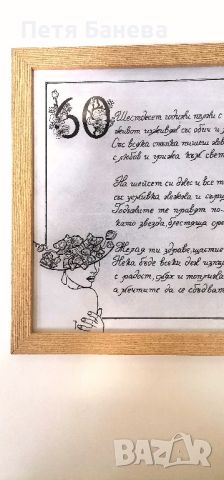 Петя Банева
60
Шестдесет години първи с
живот изживян със обич и
Със всяка стъпка пишеш
с любов и грижа към свет
На шейсет си днес и все т
със усмивка нежна и сърц
Годините те правят по-
като звезда, блестяща сре
Желая ти здраве, щастие
Нека бъде всеки ден
с радост, смях и
а мечтите да се сбъдват
BAZAR